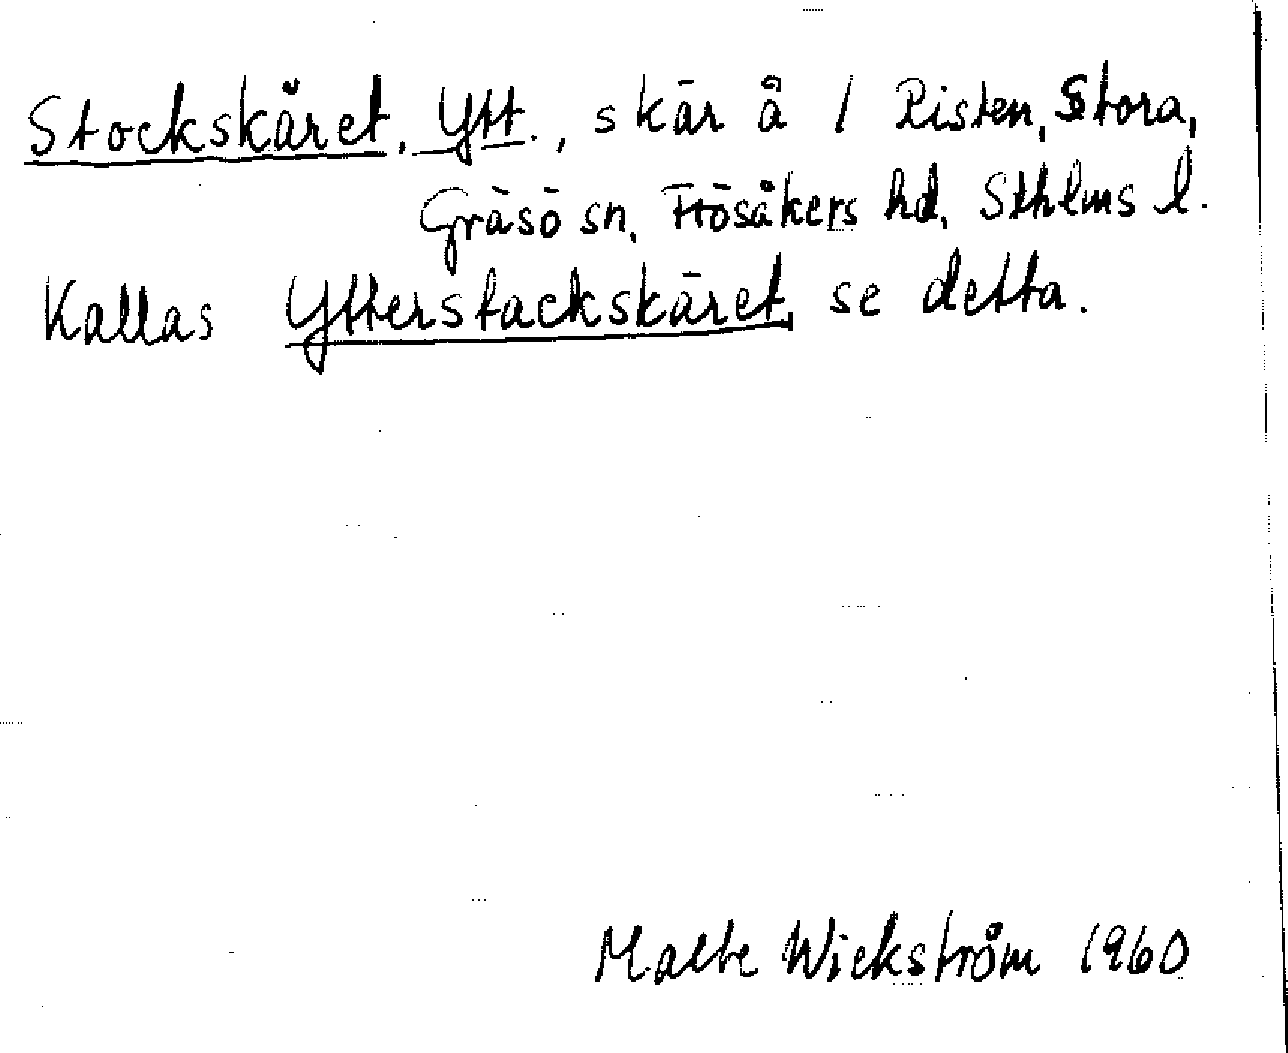 Stockskäret, Ytt., skär å / Risten, Stora,
Gräsö sn, Frösåkers hd, Sthlms l.
Kallas Ytterstackskäret, se detta.
Malte Wickström 1960